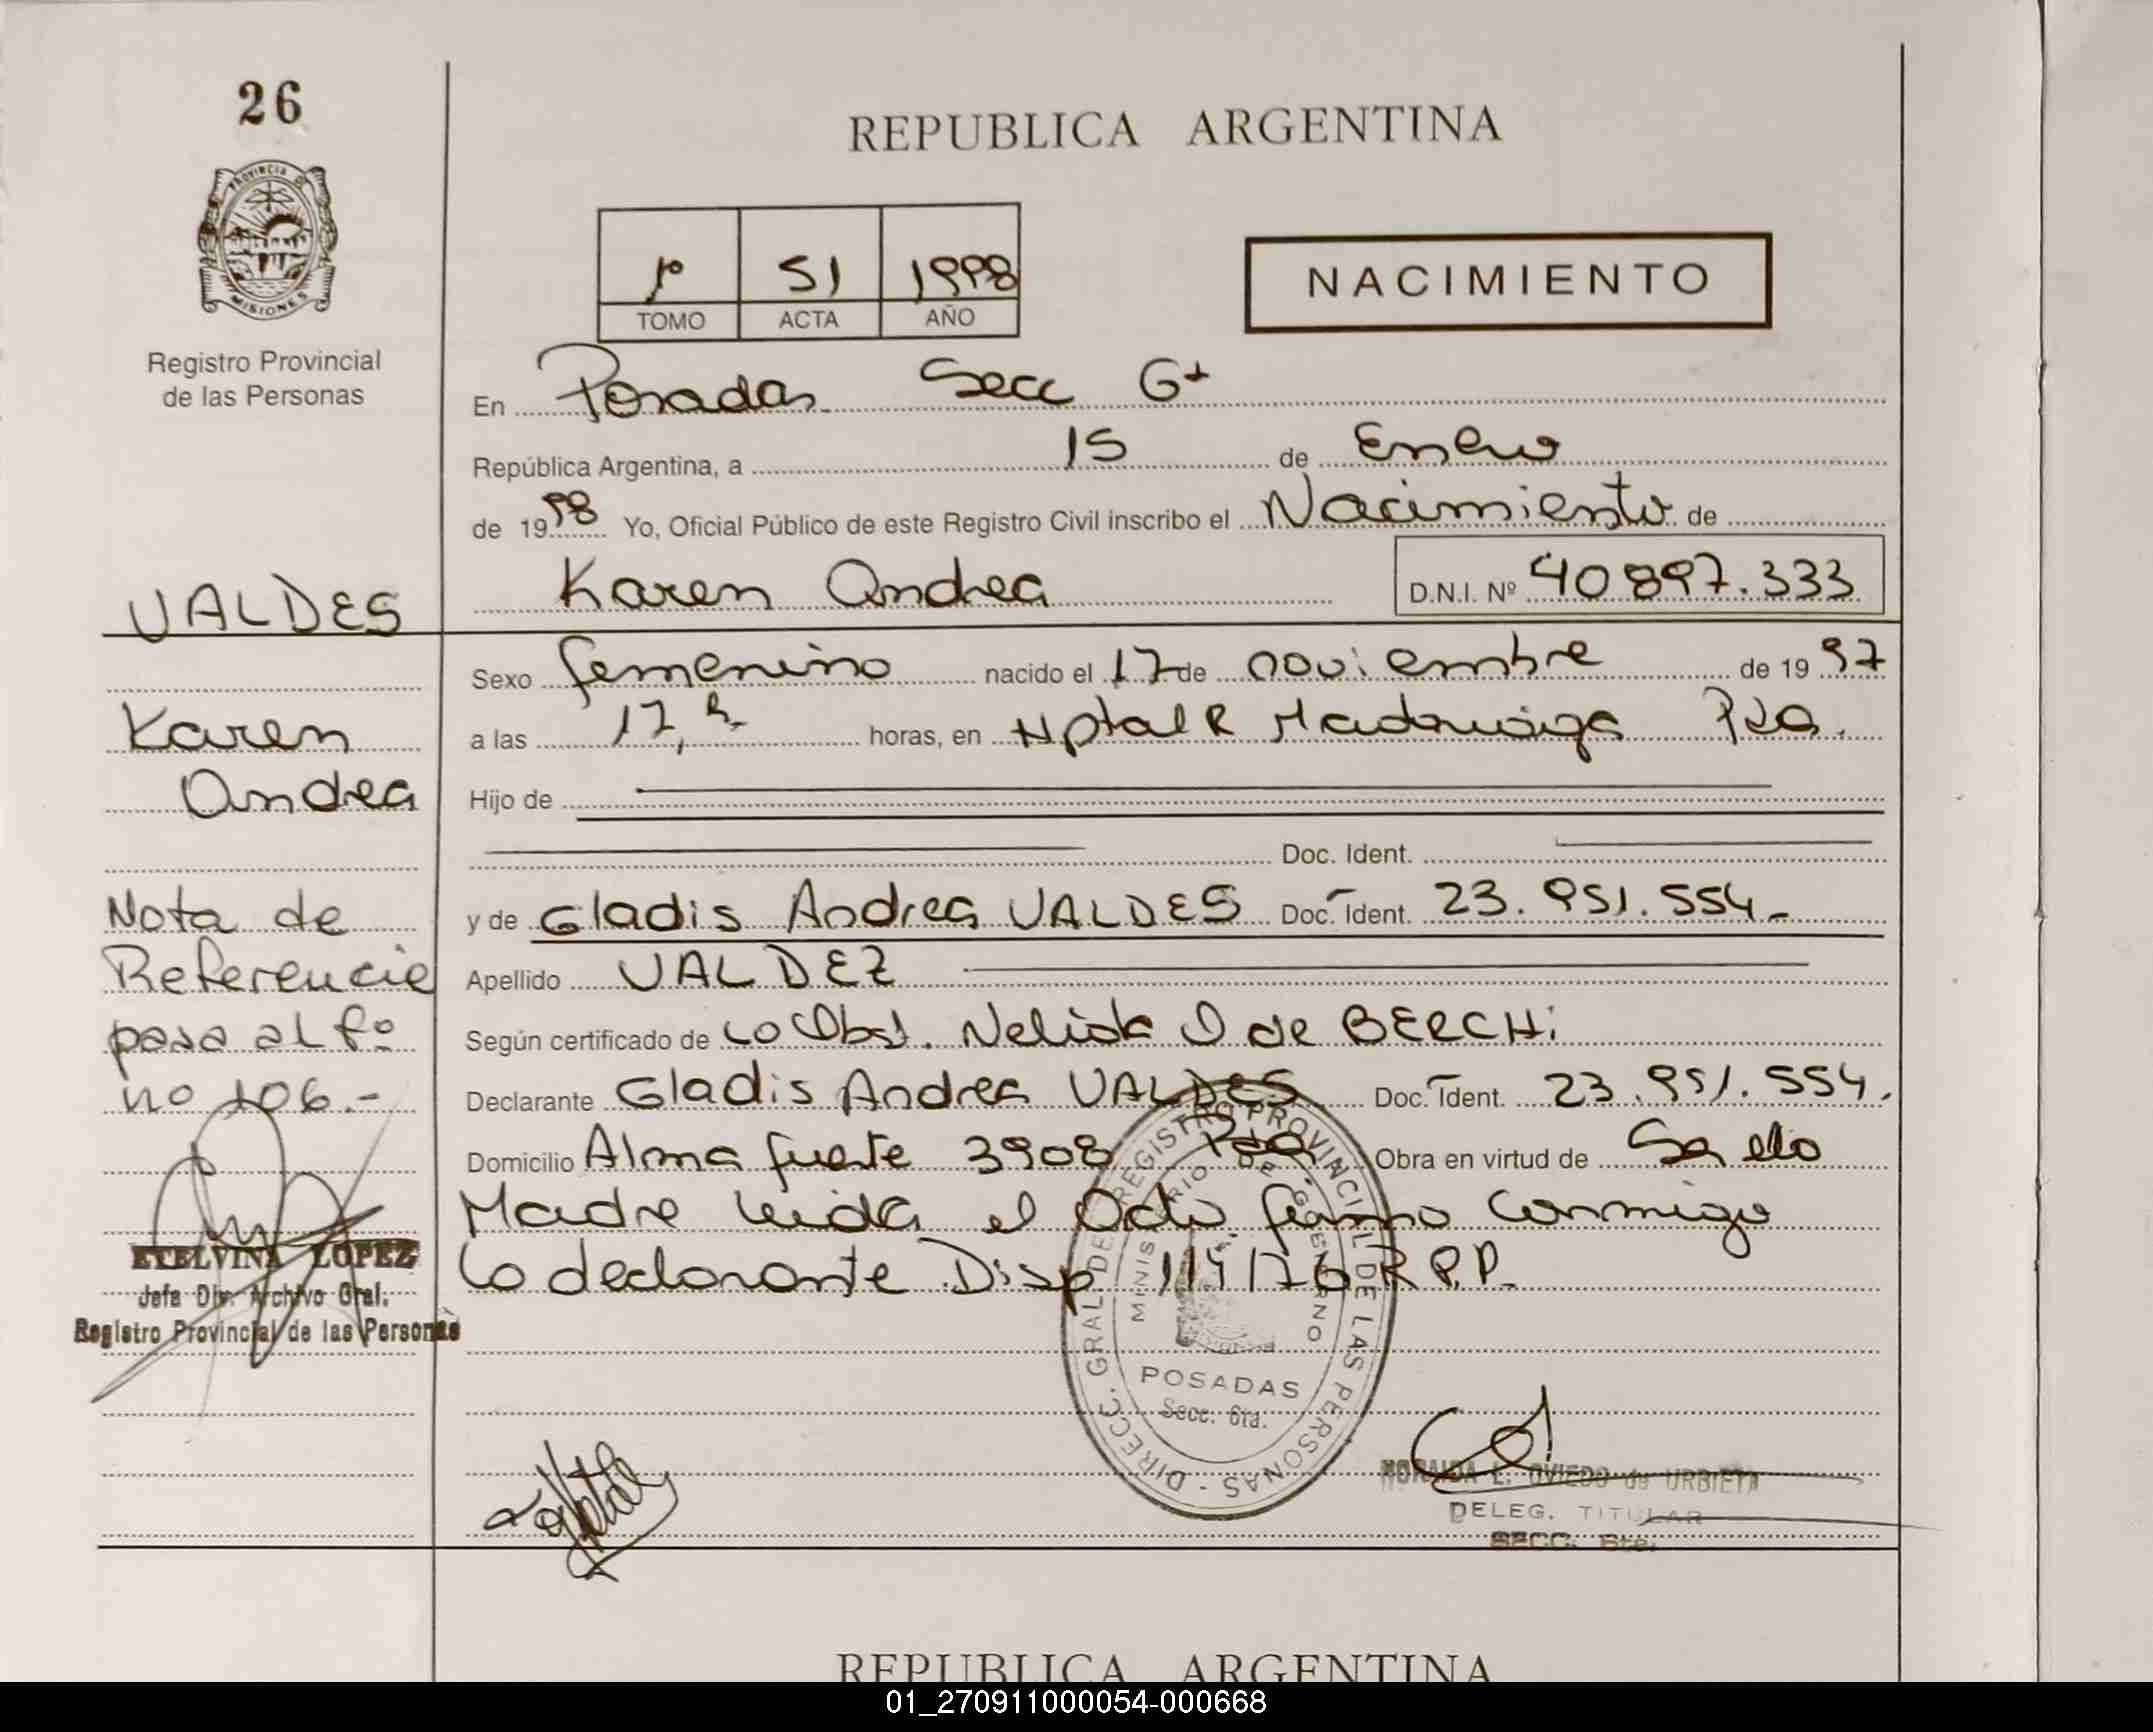 26
REPUBLICA ARGENTINA
PROVINCIA DE
MISIONES
Registro Provincial
de las Personas
1º 51 1998
TOMO ACTA AÑO
NACIMIENTO
En Posadas Secc 6ª
República Argentina, a 15 de Enero
de 1998 Yo, Oficial Público de este Registro Civil inscribo el Nacimiento de
Karen Andrea D.N.I. Nº 40897.333
VALDES
Karen
Andrea
Nota de
Referencia
pasa al fº
nº 106.-
ETELVINA LOPEZ
Jefa Div. Archivo Gral.
Registro Provincial de las Personas
Sexo femenino nacido el 17 de noviembre de 1997
a las 17, h. horas, en Hptal R Madariaga Pdas.
Hijo de
Doc. Ident.
y de Gladis Andrea VALDES Doc. Ident. 23.951.554.-
Apellido VALDEZ
Según certificado de La Obst. Nelida de BERCHi
Declarante Gladis Andrea VALDES Doc. Ident. 23.951.554.
Domicilio Alma fuerte 3908 Pdas. Obra en virtud de Ser ello
Madre leida el Acta firma conmigo
la declarante Disp 114/76 R.P.P.
DIRECC. GRAL. DE REGISTRO PROVINCIAL DE LAS PERSONAS -
MINISTERIO DE GOBIERNO
POSADAS
Secc. 6ta.
NORAIDA L. OVIEDO de URBIETA
DELEG. TITULAR
SECC. 6ta.
REPUBLICA ARGENTINA
01_270911000054-000668